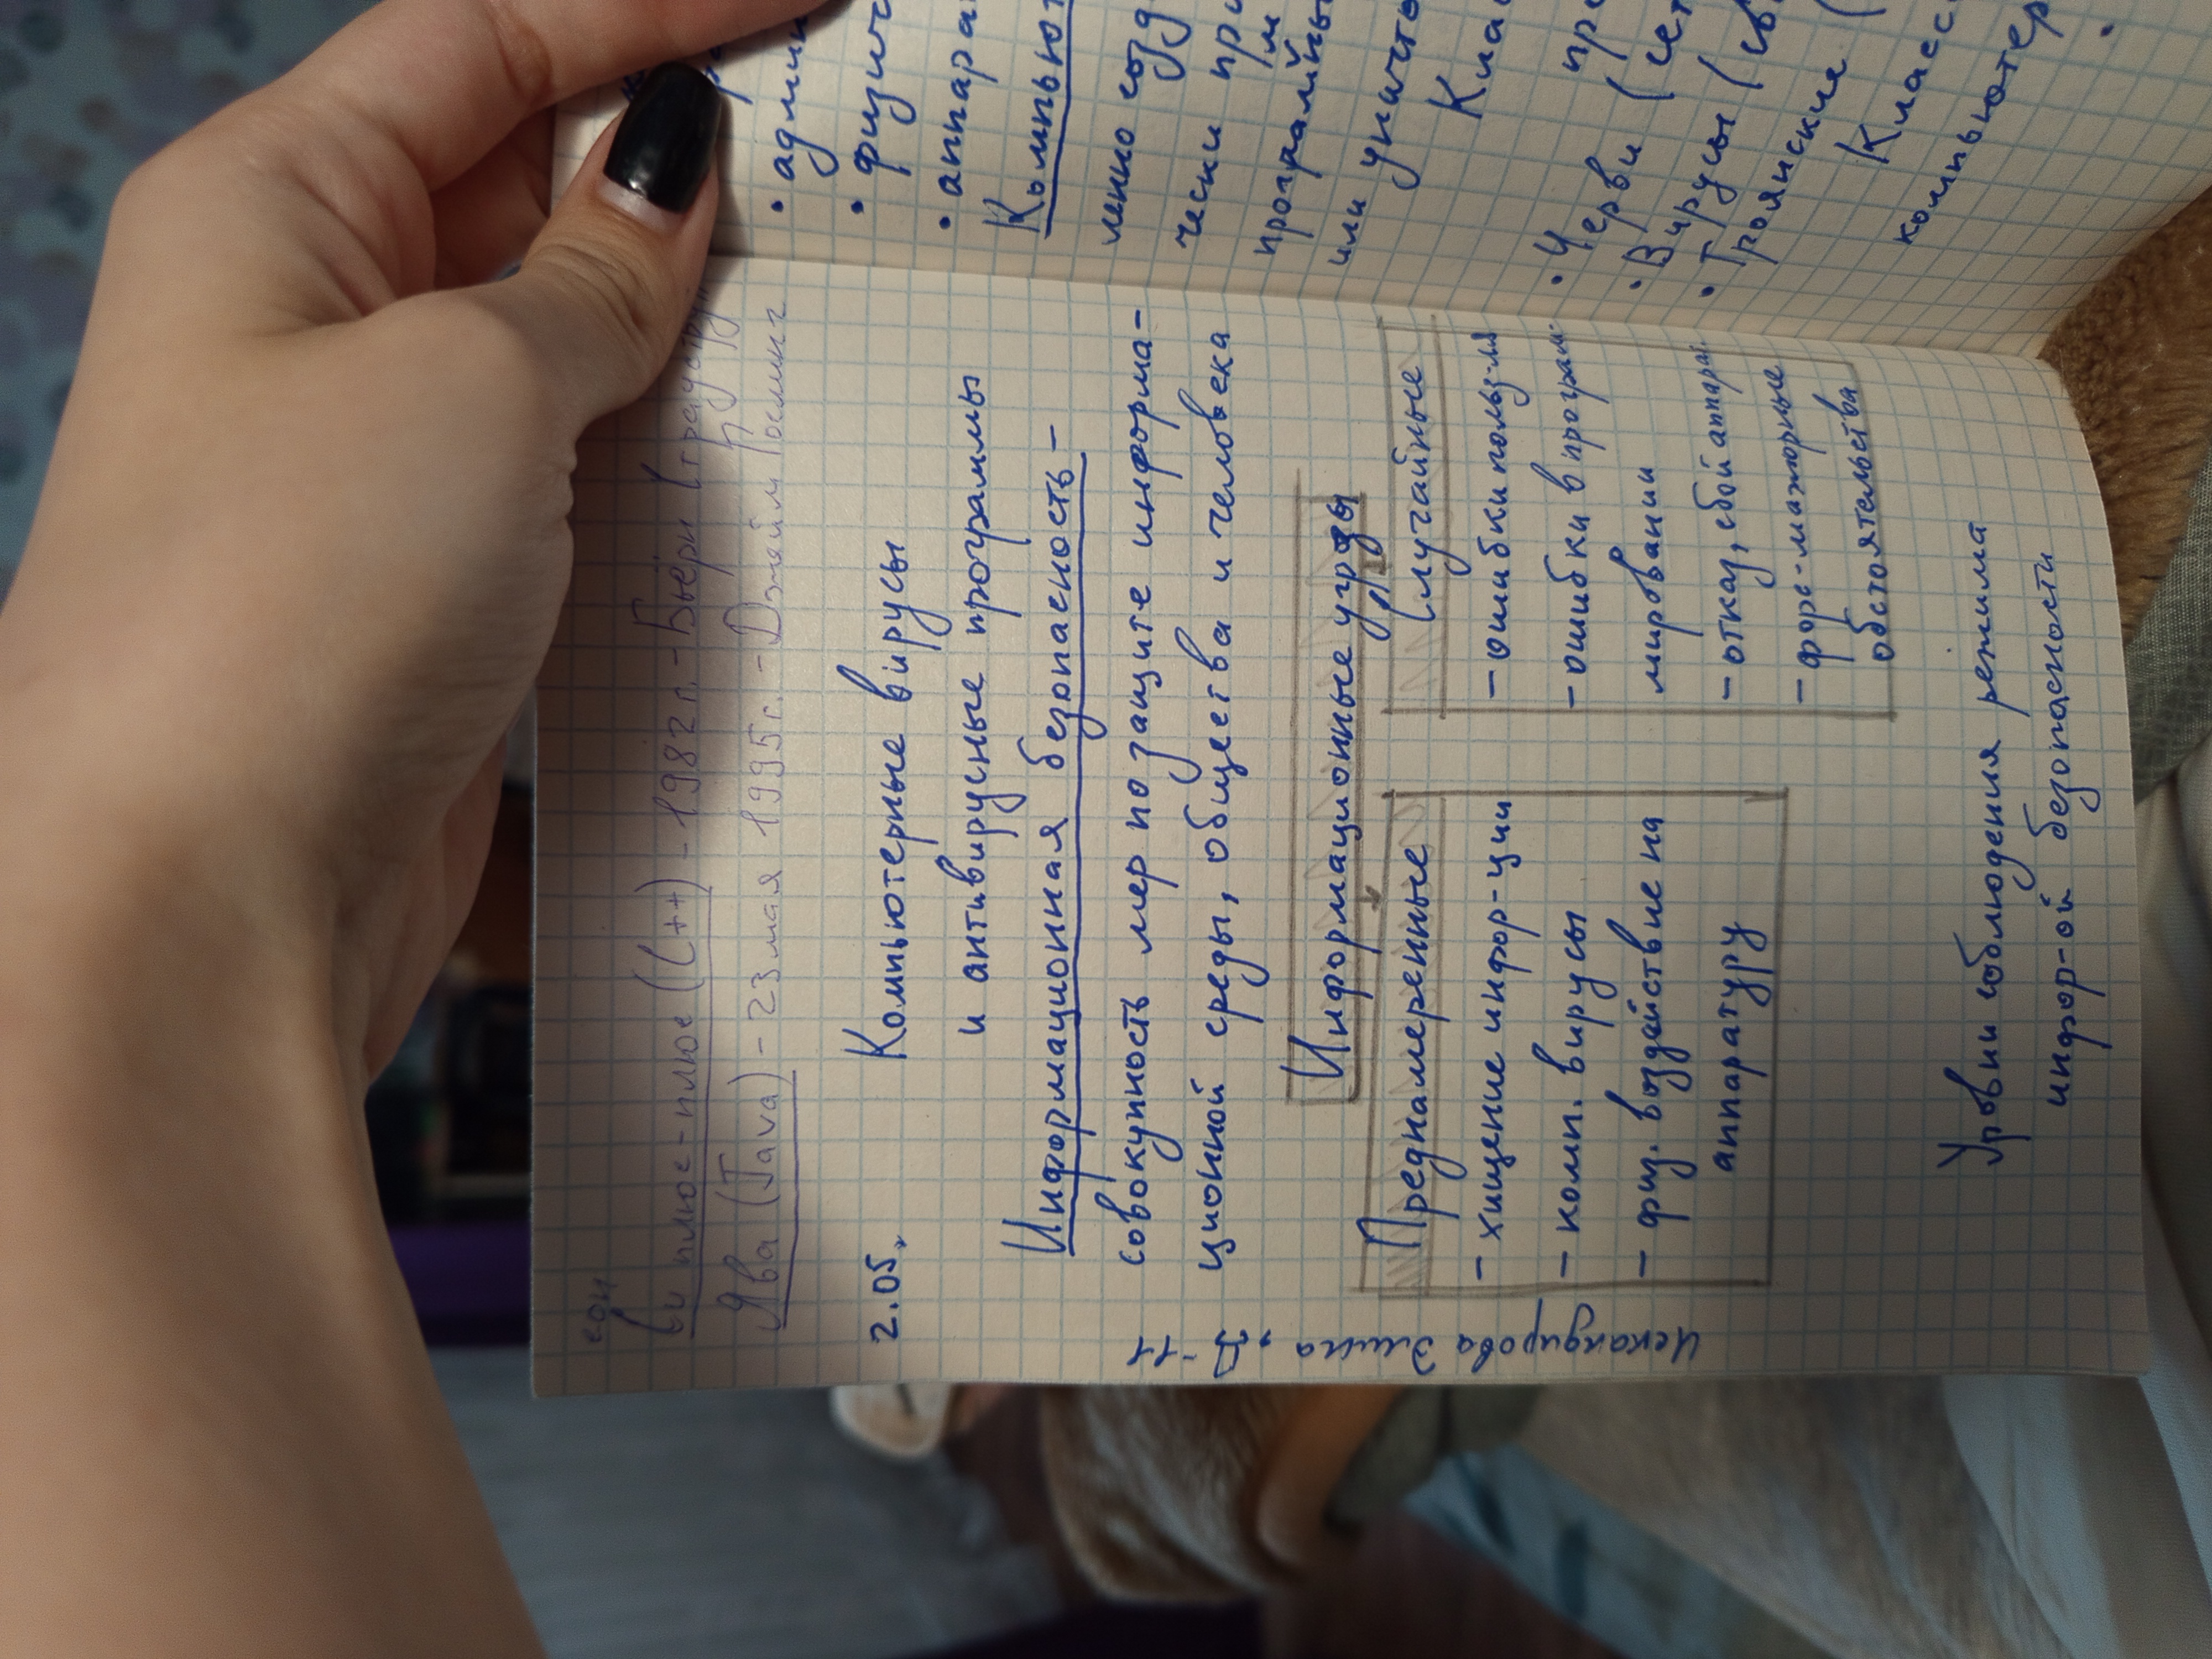 сон
Си плюс-плюс (C++) - 1982 г. - Бьёрн Страуструп
Ява (Java) - 23 мая 1995г. - Джеймс Гослинг
2.05.
Компьютерные вирусы
и антивирусные программы
Информационная безопасность -
совокупность мер по защите информа-
ционной среды, общества и человека
Информационные угрозы
Преднамеренные
- хищение инфор-ции
- комп. вирусы
- физ. воздействие на
аппаратуру
Случайные
- ошибки польз-ля
- ошибки в програм
мировании
- отказ, сбой аппарат.
- форс-мажорные
обстоятельства
Уровни соблюдения режима
инфор-ой безопасности
Искандирова Элина
11
• адми
• физич
• аппара
Компьют
ленно созд
чески при
программы
или уничто
Клас
• Черви (сет
• Вирусы (
• Троянские (
Класс
компьютер
•